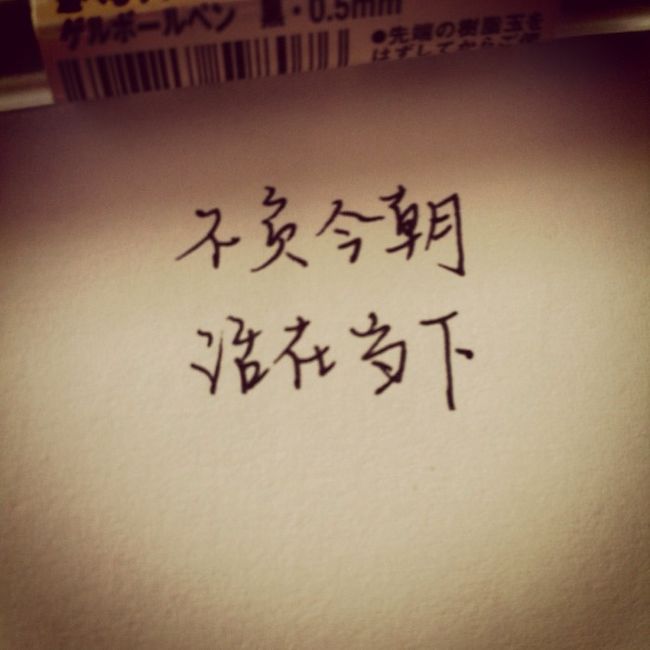 ゲルボールペン 黒・0.5mm
●先端の樹脂玉を
はずしてからご使
不负今朝
活在当下